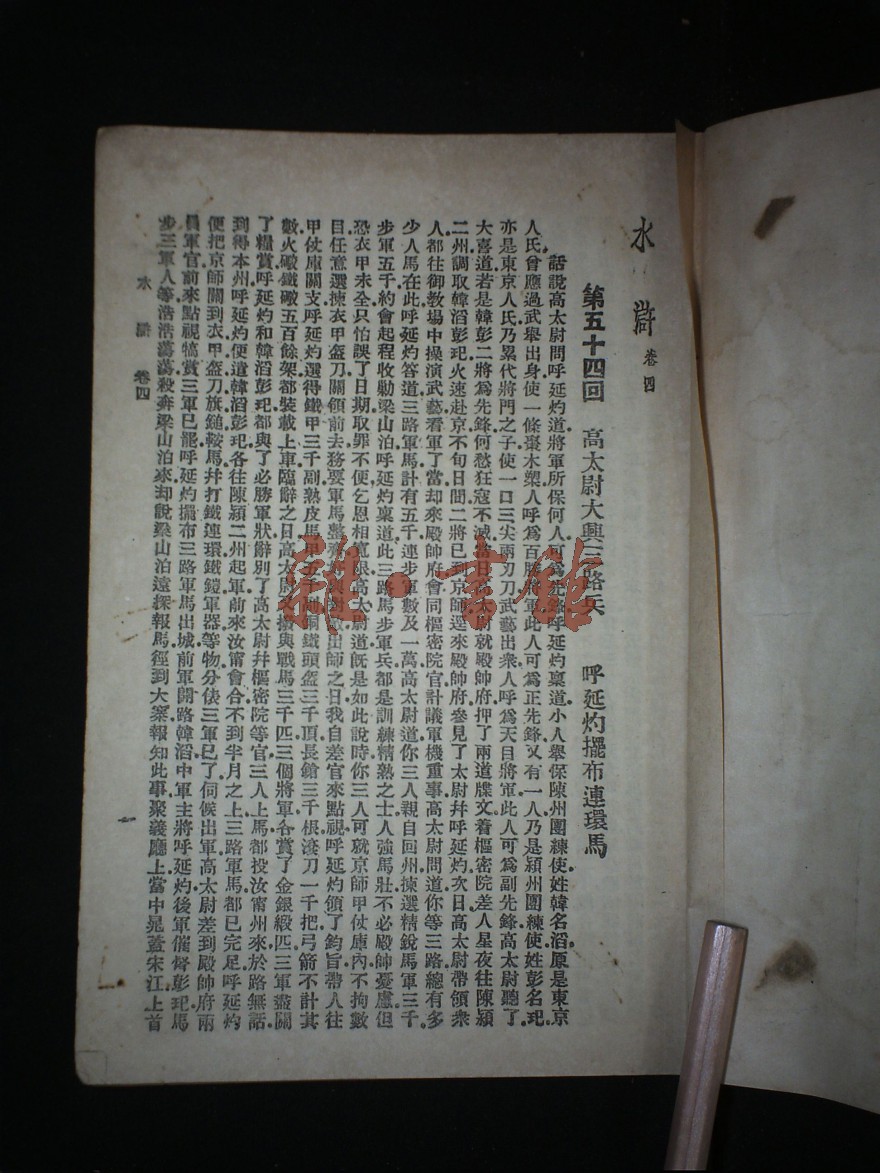 水滸 卷四
第五十四回 高太尉大興三路兵 呼延灼擺布連環馬
話說高太尉問呼延灼道將軍所保何人可為先鋒呼延灼稟道小人舉保陳州團練使姓韓名滔原是東京
人氏曾應過武舉出身使一條棗木槊人呼為百勝將軍此人可為正先鋒又有一人乃是潁州團練使姓彭名玘
亦是東京人氏乃累代將門之子使一口三尖兩刃刀武藝出衆人呼為天目將軍此人可為副先鋒高太尉聽了
大喜道若是韓彭二將為先鋒何愁狂寇不滅當日高太尉就殿帥府押了兩道牒文着樞密院差人星夜往陳潁
二州調取韓滔彭玘火速赴京不旬日間二將已到京師逕來殿帥府參見了太尉幷呼延灼次日高太尉帶領衆
人都往御教場中操演武藝看軍了當却來殿帥府會同樞密院官計議軍機重事高太尉問道你等三路總有多
少人馬在此呼延灼答道三路軍馬計有五千連步軍數及一萬高太尉道你三人親自回州揀選精銳馬軍三千
步軍五千約會起程收勦梁山泊呼延灼稟道此三路馬步軍兵都是訓練精熟之士人強馬壯不必殿帥憂慮但
恐衣甲未全只怕誤了日期取罪不便乞恩相寬限高太尉道旣是如此說時你三人可就京師甲仗庫內不拘數
目任意選揀衣甲盔刀關領前去務要軍馬整齊出師之日我自差官來點視呼延灼領了鈞旨帶人往
甲仗庫關支呼延灼選得鐵甲三千副熟皮馬甲五千副銅鐵頭盔三千頂長鎗三千根滚刀一千把弓箭不計其
數火礮鐵礮五百餘架都裝載上車臨辭之日高太尉又撥與戰馬三千匹三個將軍各賞了金銀緞匹三軍盡關
了糧賞呼延灼和韓滔彭玘都與了必勝軍狀辭別了高太尉幷樞密院等官三人上馬都投汝甯州來於路無話
到得本州呼延灼便遣韓滔彭玘各往陳潁二州起軍前來汝甯會合不到半月之上三路軍馬都已完足呼延灼
便把京師關到衣甲盔刀旗鎗鞍馬幷打鐵連環鐵鎧軍器等物分俵三軍已了伺候出軍高太尉差到殿帥府兩
員軍官前來點視犒賞三軍已罷呼延灼擺布三路軍馬出城前軍開路韓滔中軍主將呼延灼後軍催督彭玘馬
步三軍人等浩浩蕩蕩殺奔梁山泊來却說梁山泊遠探報馬徑到大寨報知此事聚義廳上當中晁蓋宋江上首
水滸 卷四
雜·書館